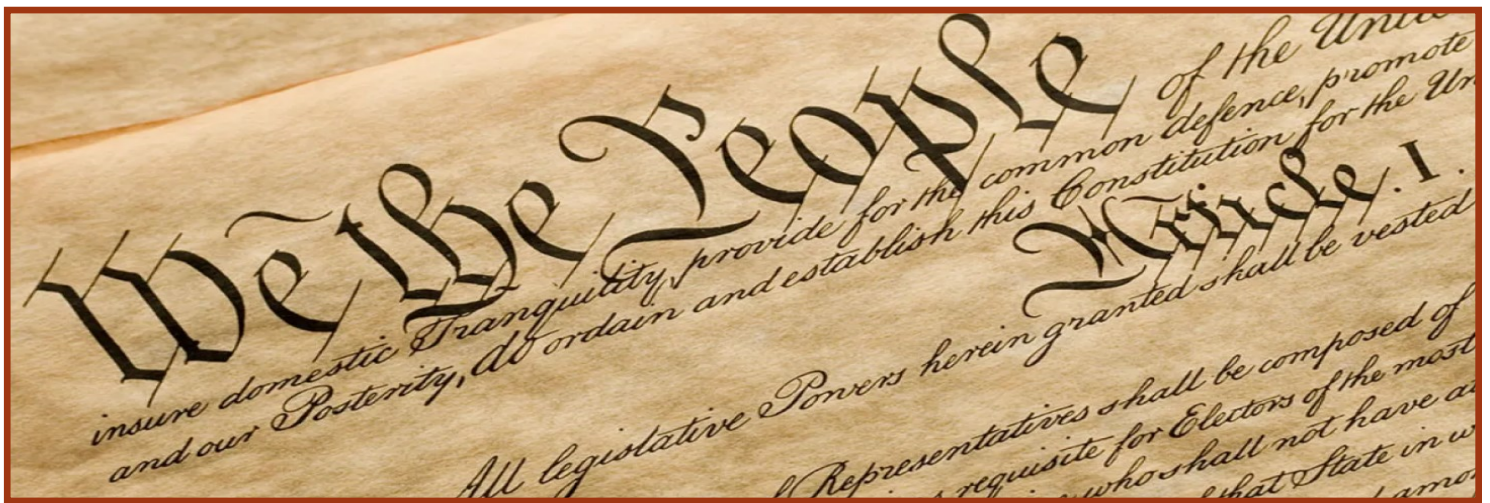 We the People of the Unit
insure domestic Tranquility, provide for the common defence, promote
and our Posterity, do ordain and establish this Constitution for the Un
Article. I.
All legislative Powers herein granted shall be vested
Representatives shall be composed of
requisite for Electors of the most
who shall not have at
that State in w